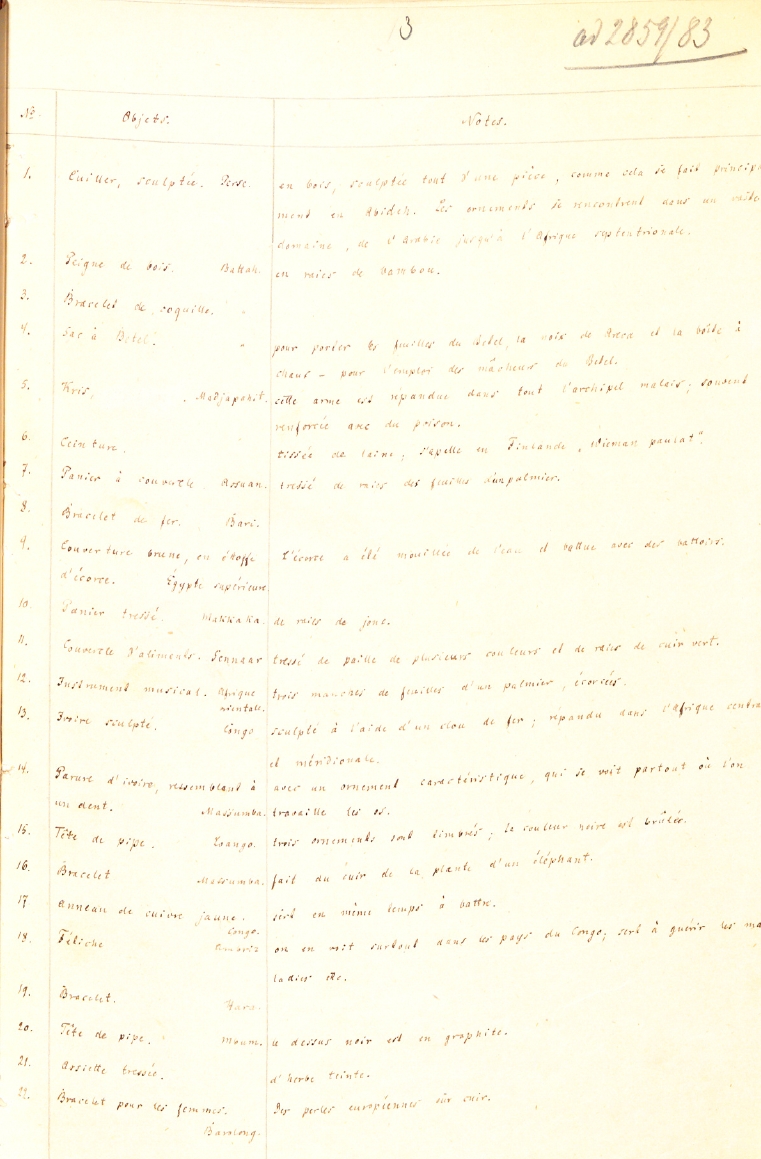 3
ad 2859/83
No. Objets. Notes.
1. Cuiller, sculptée. Perse. en bois, sculptée tout d'une pièce, comme cela se fait principa
ment en Abideh. Les ornements se rencontrent dans un vaste
domaine, de l'Arabie jusqu'à l'Afrique septentrionale.
2. Peigne de bois. Battah. en raies de bambou.
3. Bracelet de coquille. "
4. Sac à Betel. " pour porter les feuilles du Betel, la noix de Areca et la boîte à
chaux – pour l'emploi des mâcheurs du Betel.
5. Kris, Madjapahit. cette arme est répandue dans tout l'archipel malais; souvent
renforcée avec du poison.
6. Ceinture. tissée de laine; s'apelle en Finlande „Wieman paulat“.
7. Panier à couvercle Assuan. tressé de raies des feuilles d'un palmier.
8. Bracelet de fer. Bari.
9. Couverture brune, en étoffe L'écorce a été mouillée de l'eau et battue avec des battoirs.
d'écorce. Égypte supérieure.
10. Panier tressé. Makkaka. de raies de jonc.
11. Couvercle d'aliments. Sennaar tressé de paille de plusieurs couleurs et de raies de cuir vert.
12. Instrument musical. Afrique trois manches de feuilles d'un palmier, écorcées.
orientale.
13. Ivoire sculpté. Congo sculpté à l'aide d'un clou de fer; répandu dans l'Afrique centra
et méridionale.
14. Parure d'ivoire, ressemblant à avec un ornement caractéristique, qui se voit partout où l'on
un dent. Massumba. travaille les os.
15. Tête de pipe. Loango. trois ornements sont timbrés; la couleur noire est brûlée.
16. Bracelet Massumba. fait du cuir de la plante d'un éléphant.
17. Anneau de cuivre jaune. sert en même temps à battre.
Congo.
18. Fétiche on en voit surtout dans les pays du Congo; sert à guérir les ma
ladies etc.
19. Bracelet.
20. Tête de pipe. Mount. le dessus noir est en graphite.
21. Assiette tressée. d'herbe teinte.
22. Bracelet pour les femmes. Des perles européennes sûr cuir.
Barolong.